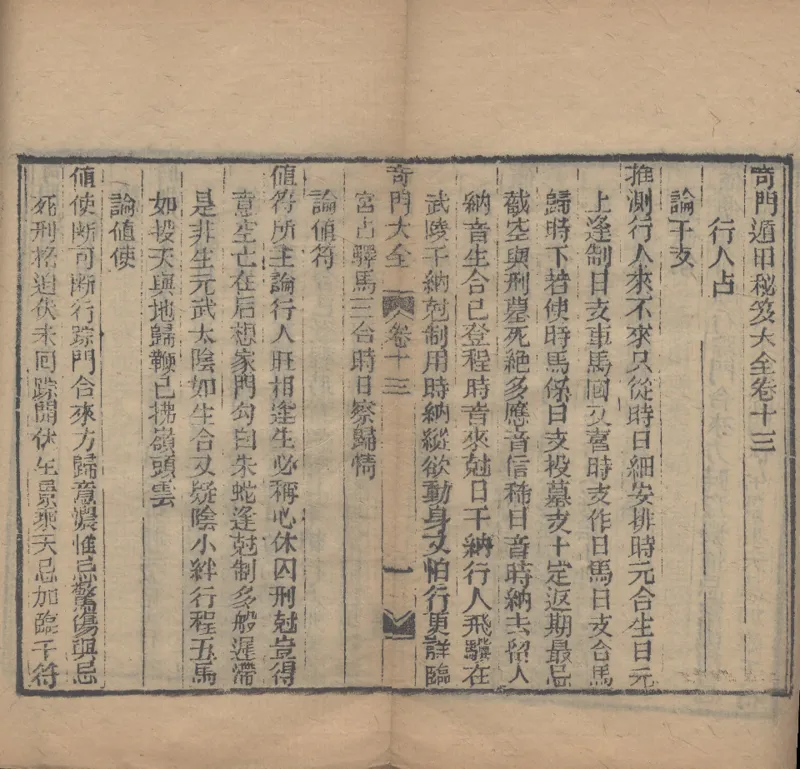 奇門遁甲秘笈大全卷十三
行人占
論干支
推測行人來不來只從時日細安排時元合生日元
上逢制日支車馬回又奮時支作日馬日支合馬
歸時下若使時馬係日支投墓支干定返期最忌
截空與刑墓死絕多應音信稀日音時納去留人
納音生合已登程時音來尅日干納行人飛驟在
武陵干納尅制用時納縱欲動身又怕行更詳臨
奇門大全 卷十三 一
宮占驛馬三合時日察歸情
論值符
值符所主論行人旺相逢生必稱心休囚刑尅豈得
意空亡在后想家門勾白朱蛇逢尅制多般遲滯
是非生元武太陰如生合又疑陰小絆行程五馬
如投天與地歸鞭已拂嶺頭雲
論值使
值使断可断行踪門合來方歸意濃惟忌驚傷與忌
死刑格迫伏未回踪開休生景乘天忌加臨干符